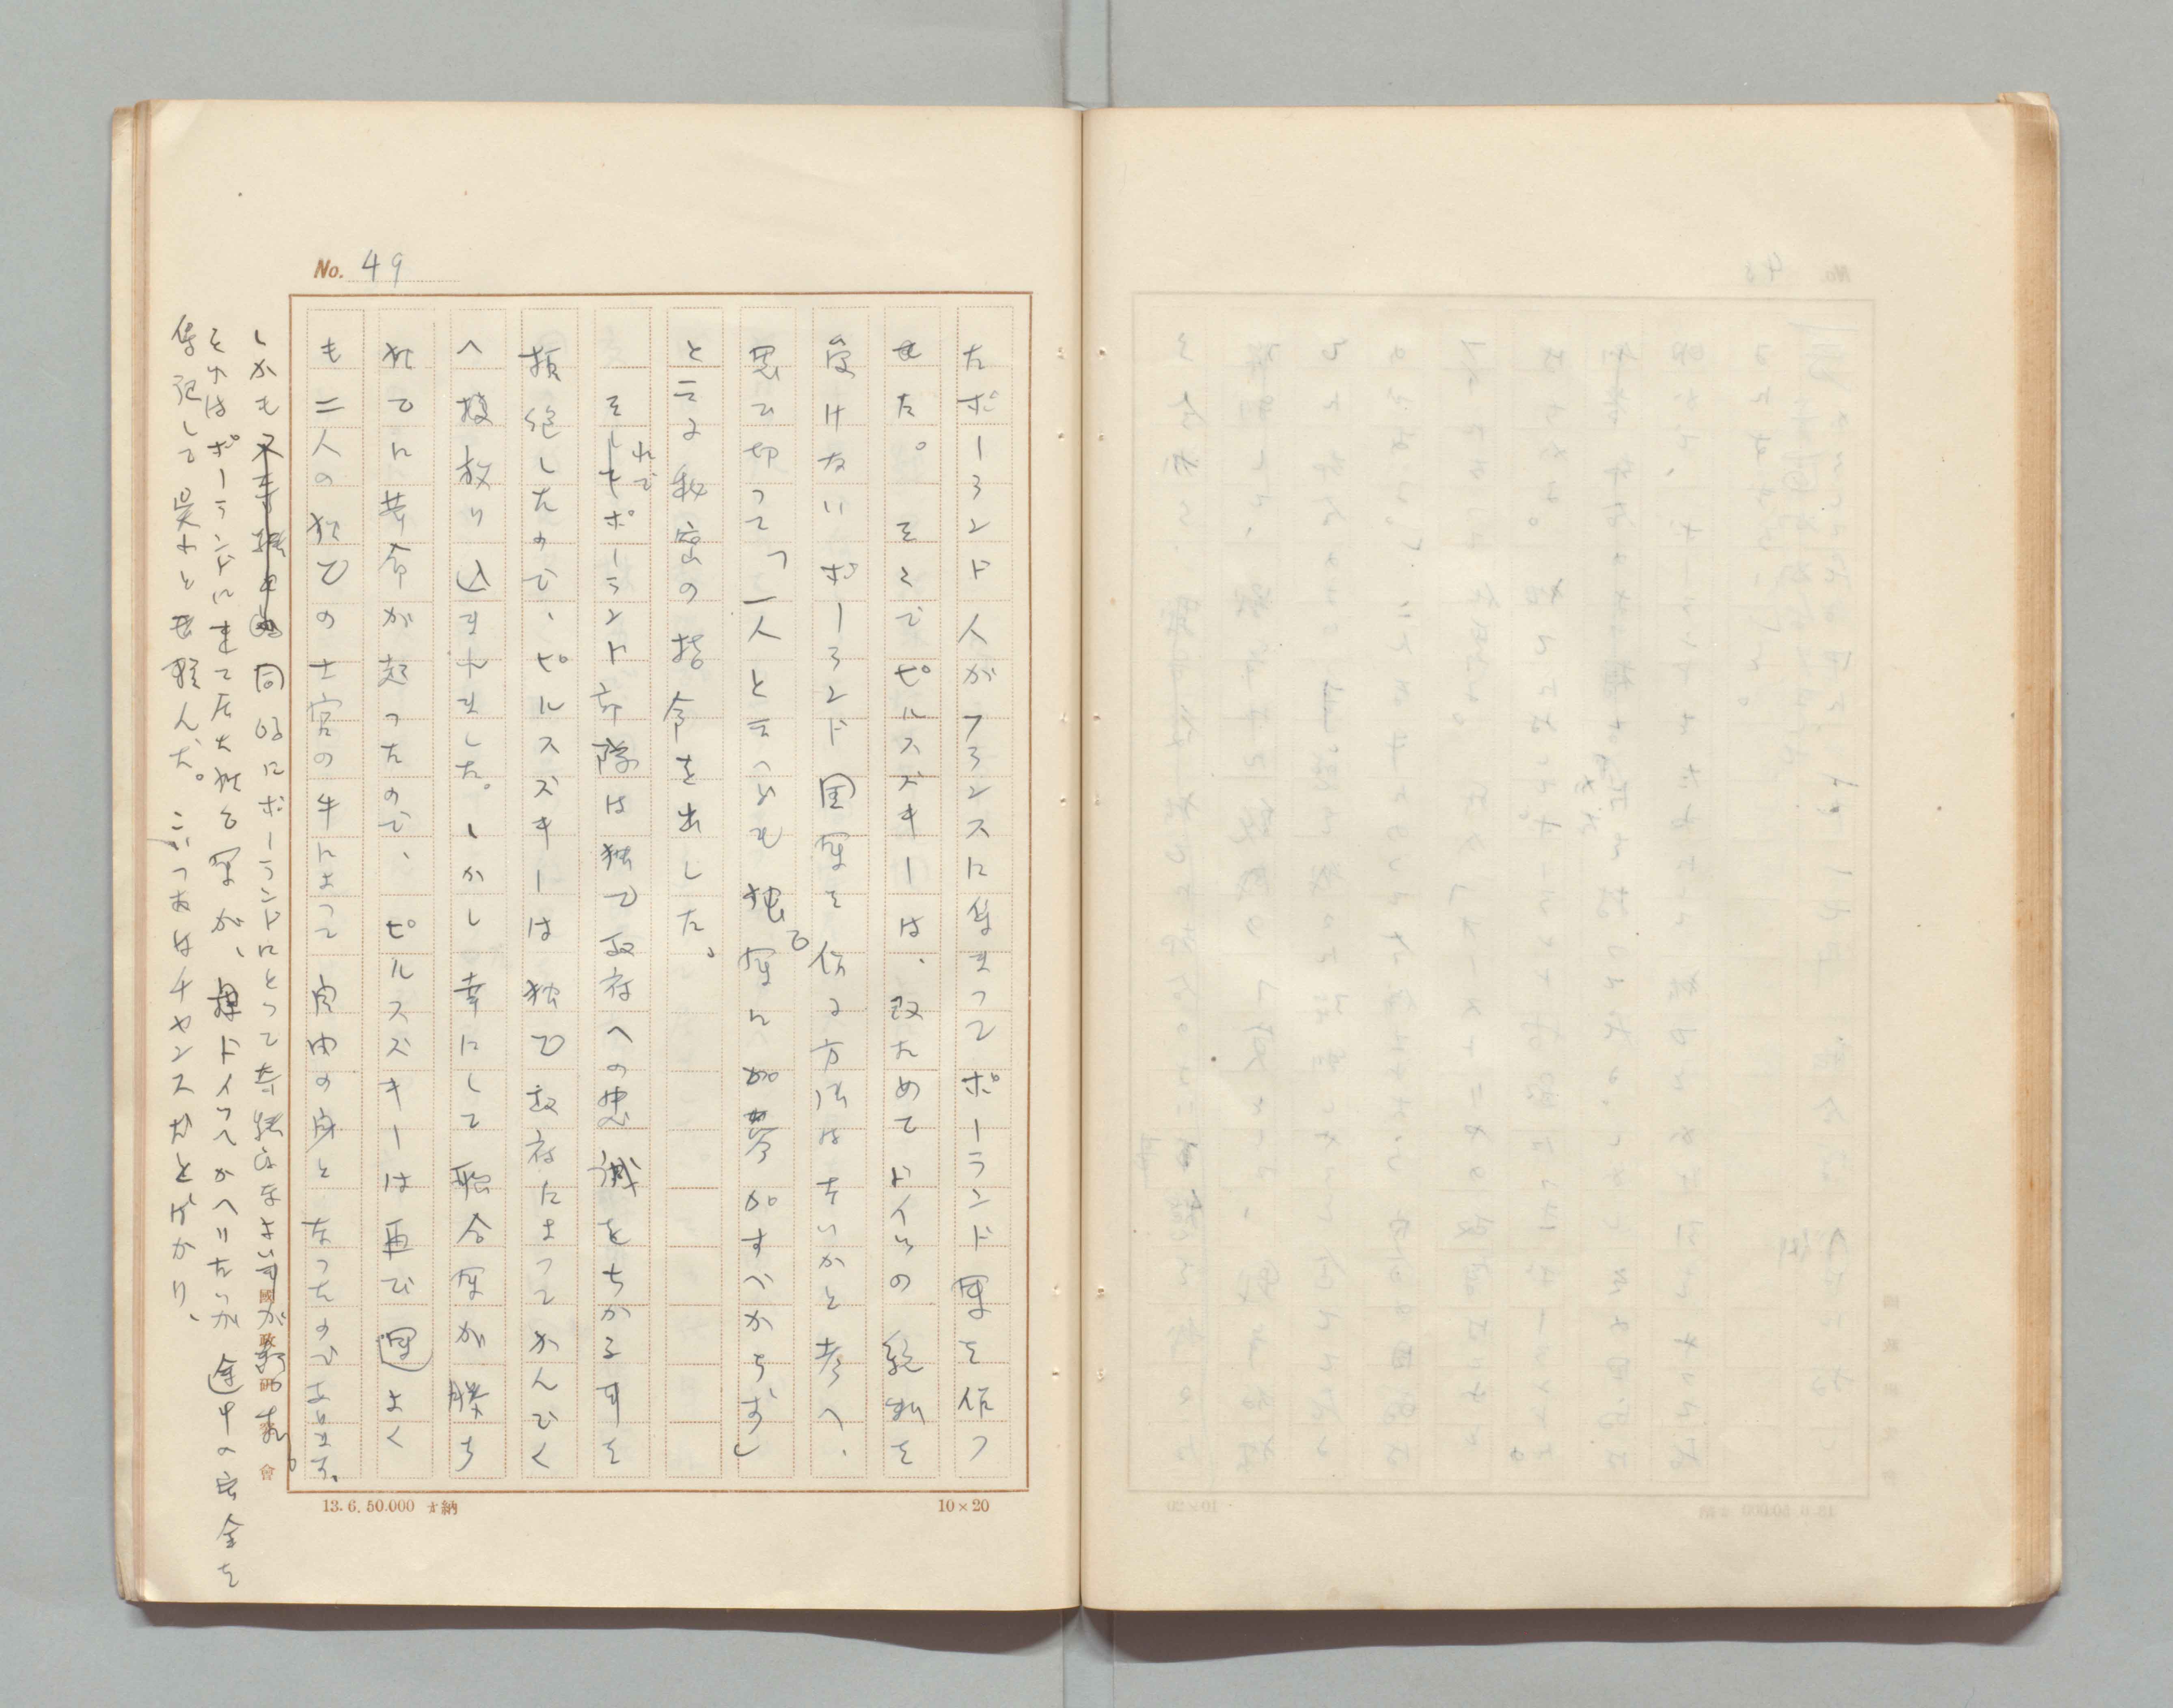 No. 49
たポーランド人がフランスに集まってポーランド軍を作つ
せた。そこでピルスズキーは、改めてドイツの援助を
受けないポーランド国軍を作る方法はないかと考へ、
思ひ切って「一人と云へども独乙軍に参加すべからず」
と云ふ秘密の指令を出した。
それでポーランド部隊は独乙政府への忠誠をちかふ事を
拒絶したので、ピルスズキーは独乙政府によってかんごく
へ投り込まれました。しかし幸にして聯合軍が勝ち
独乙に革命が起ったので、ピルスズキーは再び運よく
も二人の独乙の士官の手によって自由の身となったのであります。
しかも同時にポーランドにとって
それはポーランドにまで居た独乙軍が、ドイツへかへりたいが途中の安全を
保証して呉れと頼んだ。こいつあはチャンスだとばかり、
國政研究會
13. 6. 50.000 納
10×20